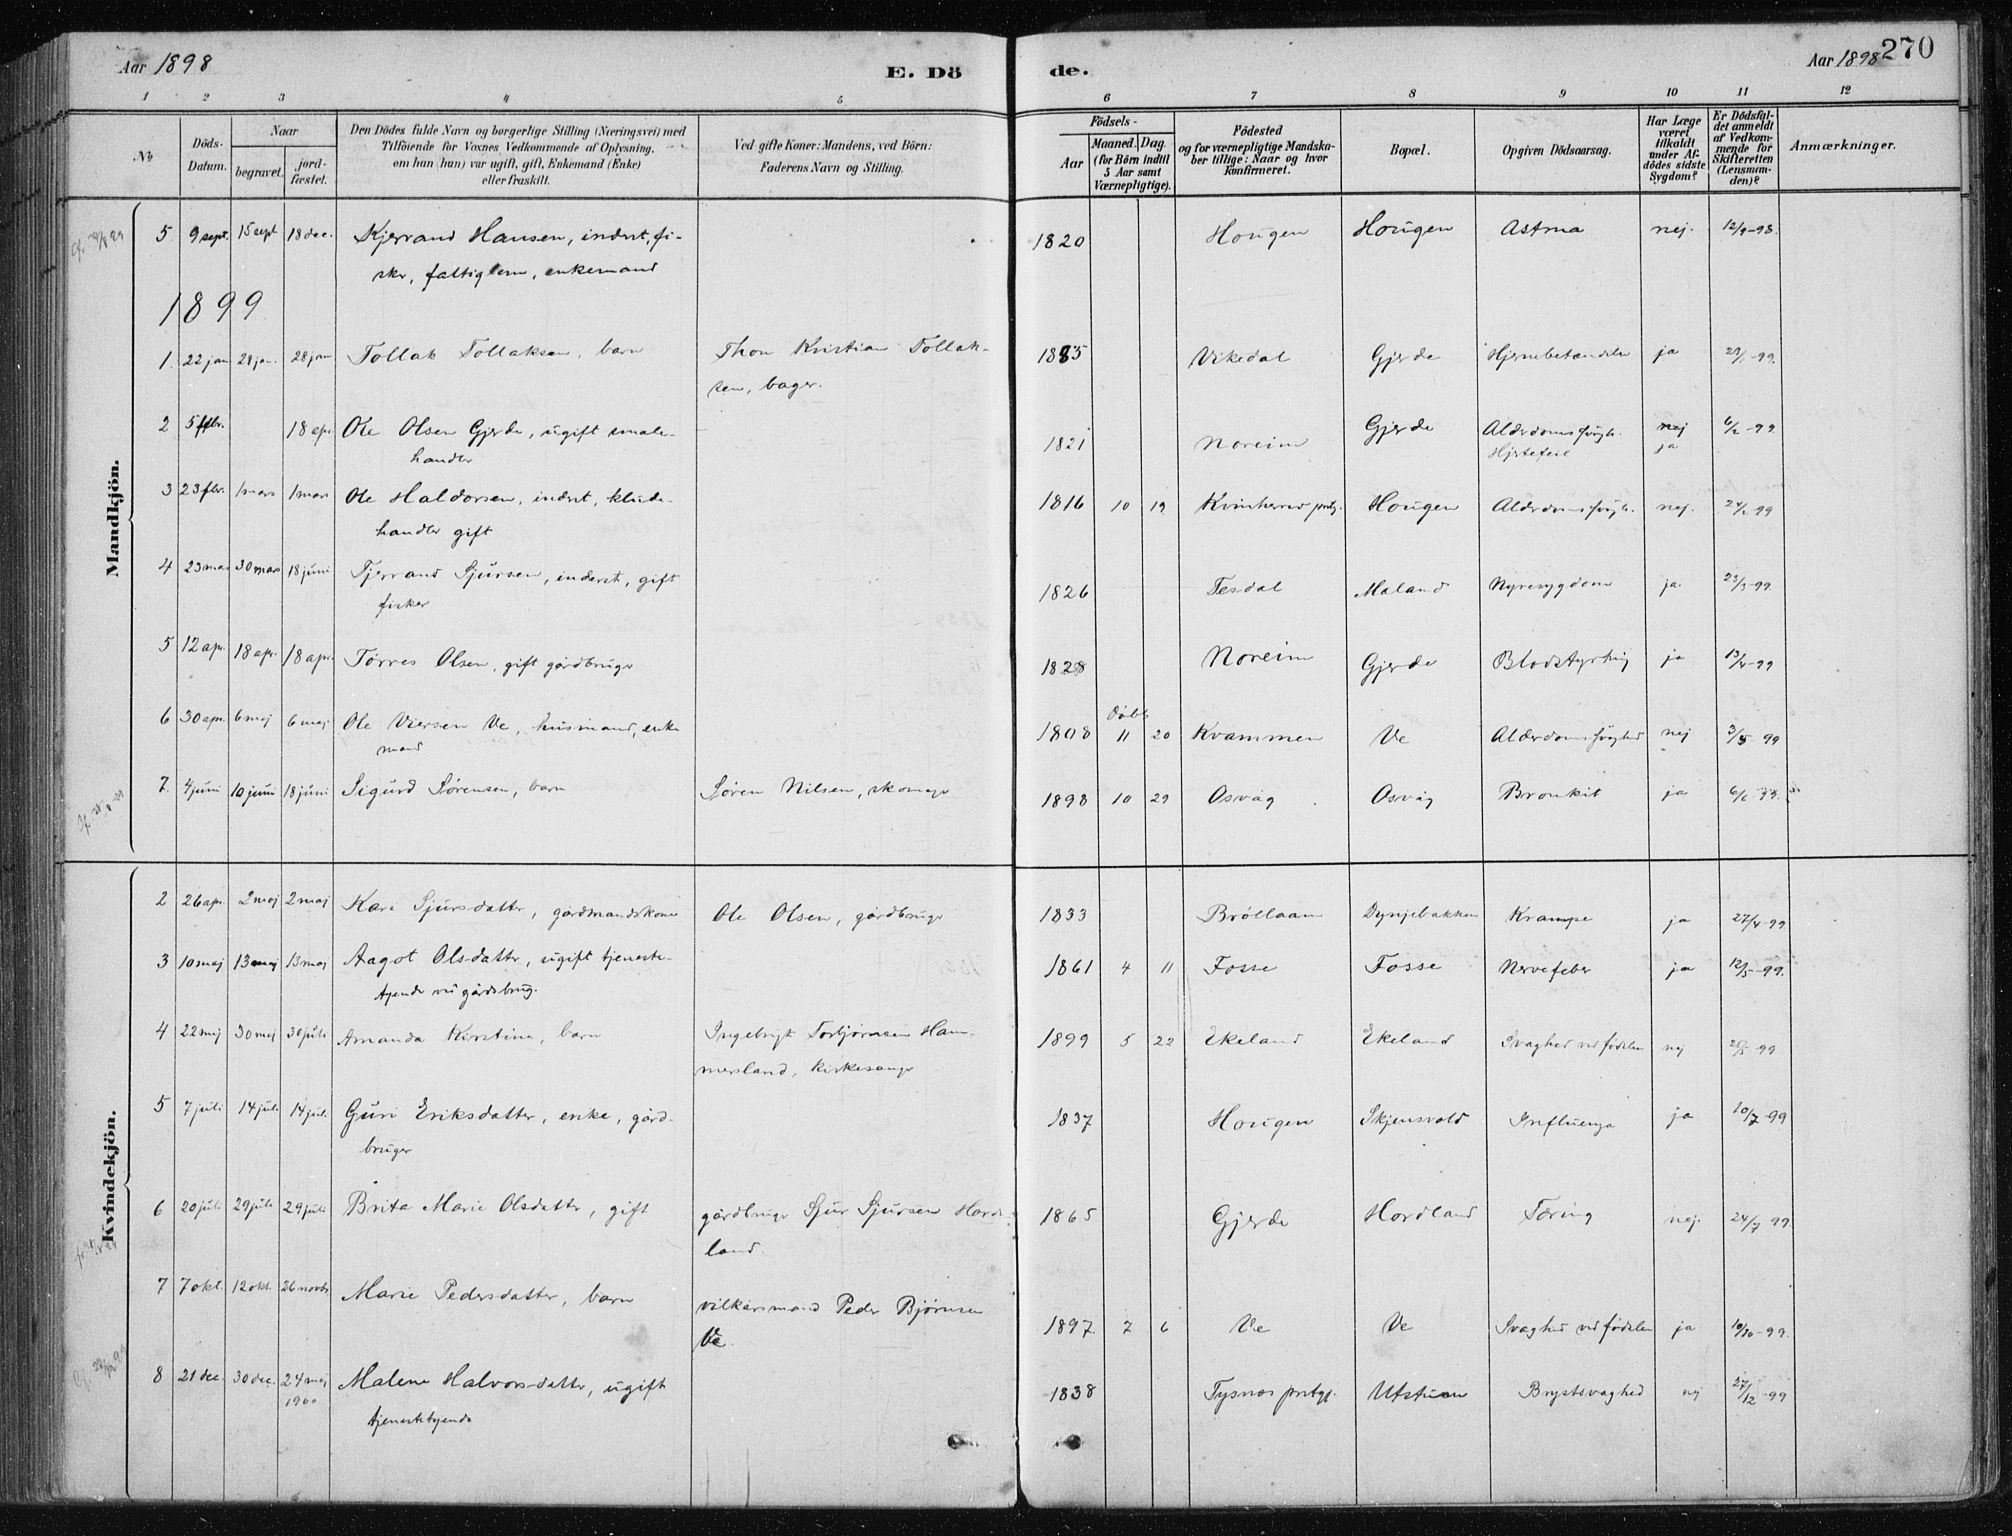 Aar 1898 E. Dö de. Aar 1898 270
1 2 3 4 5 6 7 8 9 10 11 12
No
Döds-Datum.
Naar
begravet.
jord-fæstet.
Den Dödes fulde Navn og borgerlige Stilling (Næringsvei) med
Tilföiende for Voxnes Vedkommende af Oplysning,
om han (hun) var ugift, gift, Enkemand (Enke)
eller fraskilt.
Ved gifte Koner: Mandens, ved Börn:
Faderens Navn og Stilling.
Födsels-
Aar
Maaned. Dag.
(for Börn indtil
5 Aar samt
Værnepligtige).
Födested
og for værnepligtige Mandska-
ber tillige: Naar og hvor
konfirmeret.
Bopæl.
Opgiven Dödsaarsag.
Har Læge
været
tilkaldt
under Af-
dödes sidste
Sygdom?
Er Dödsfal-
det anmeldt
af Vedkom-
mende for
Skifteretten
(Lensman-
den)?
Anmærkninger.
Mandkjön.
5 9 sept. 15 sept 18 dec. Kjerrand Hansen, inderst, fi- 1820 Hougen Hougen Astma nej. 12/9-98.
sker, fattiglem, enkemand
1899
1. 22 jan 28 jan. 28 jan Tollak Tollaksen, barn Thon Kristian Tollak- 1885 Vikedal Gjerde Hjernebetændelse ja -99.
sen, bager.
2 5 febr. 18 apr. Ole Olsen Gjerde, ugift smale- 1821 Noreim Gjerde Alderdomssvagh. nej 6/2-99
handler Hjertefeil ja
3 23 fbr. 1 mars 1 mars Ole Haldorsen, inderst, klude- 1816 10 19 Kvinherred prstgj. Hougen Alderdomssvagh. nej. 24/2-99
handler gift
4 23 mars 30 mars 18 juni Tjerrand Sjursen, inderst, gift 1826 Tesdal Maland Nyresygdom ja 23/3-99.
fisker
5 12 apr. 18 apr. 18 apr. Tørres Olsen, gift gårdbruger 1828 Noreim Gjerde Blodstyrtning ja 13/4-99
6 30 apr. 6 maj 6 maj Ole Viersen Ve, husmand, enke 1808 døbt 11 20 Kvammen Ve Alderdomssvaghed nej 3/5-99
mand
7. 4 juni 10 juni 18 juni Sigurd Sørensen, barn Søren Nilsen, skomager 1898 10 29 Osvåg Osvåg Bronkit ja 6/6-99.
Kvindekjön.
2 26 apr. 2 maj 2 maj Kari Sjursdatter, gårdmandskone Ole Olsen, gårdbruger 1833 Brøllaam Dynjebakken Krampe ja 27/4-99
3 10 maj 13 maj 13 maj Aagot Olsdatter, ugift tjeneste- 1861 4 11 Fosse Fosse Nervefeber ja 12/5-99.
tyende ved gårdsbrug.
4 22 maj 30 maj 30 juli Amanda Kirstine, barn Ingebrigt Torbjørnsen Ham- 1899 5 22 Ekeland Ekeland Svaghed ved fødslen nej -99
mersland, kirkesanger
5 7 juli 14 juli 14 juli Guri Eriksdatter, enke, gård- 1837 Hougen Skjensvold Influenza ja 10/7-99
bruger
6 20 juli 29 juli 29 juli Brita Marie Olsdatter, gift gårdbruger Sjur Sjursen Hord- 1865 Gjerde Hordland Tæring nej. 24/7 99.
land.
7 7 okt. 12 okt. 26 novbr. Marie Pedersdatter, barn vilkårsmand Peder Bjørnsen 1897 7 6 Ve Ve Svaghed ved fødslen ja 10/10-99.
Ve.
8 21 dec. 30 dec. 24 maj Malene Halvorsdatter, ugift 1838 Tysnæs prstgj. Utstuen Brystsvaghed nej 27/12-99
1900
tjenestetyende